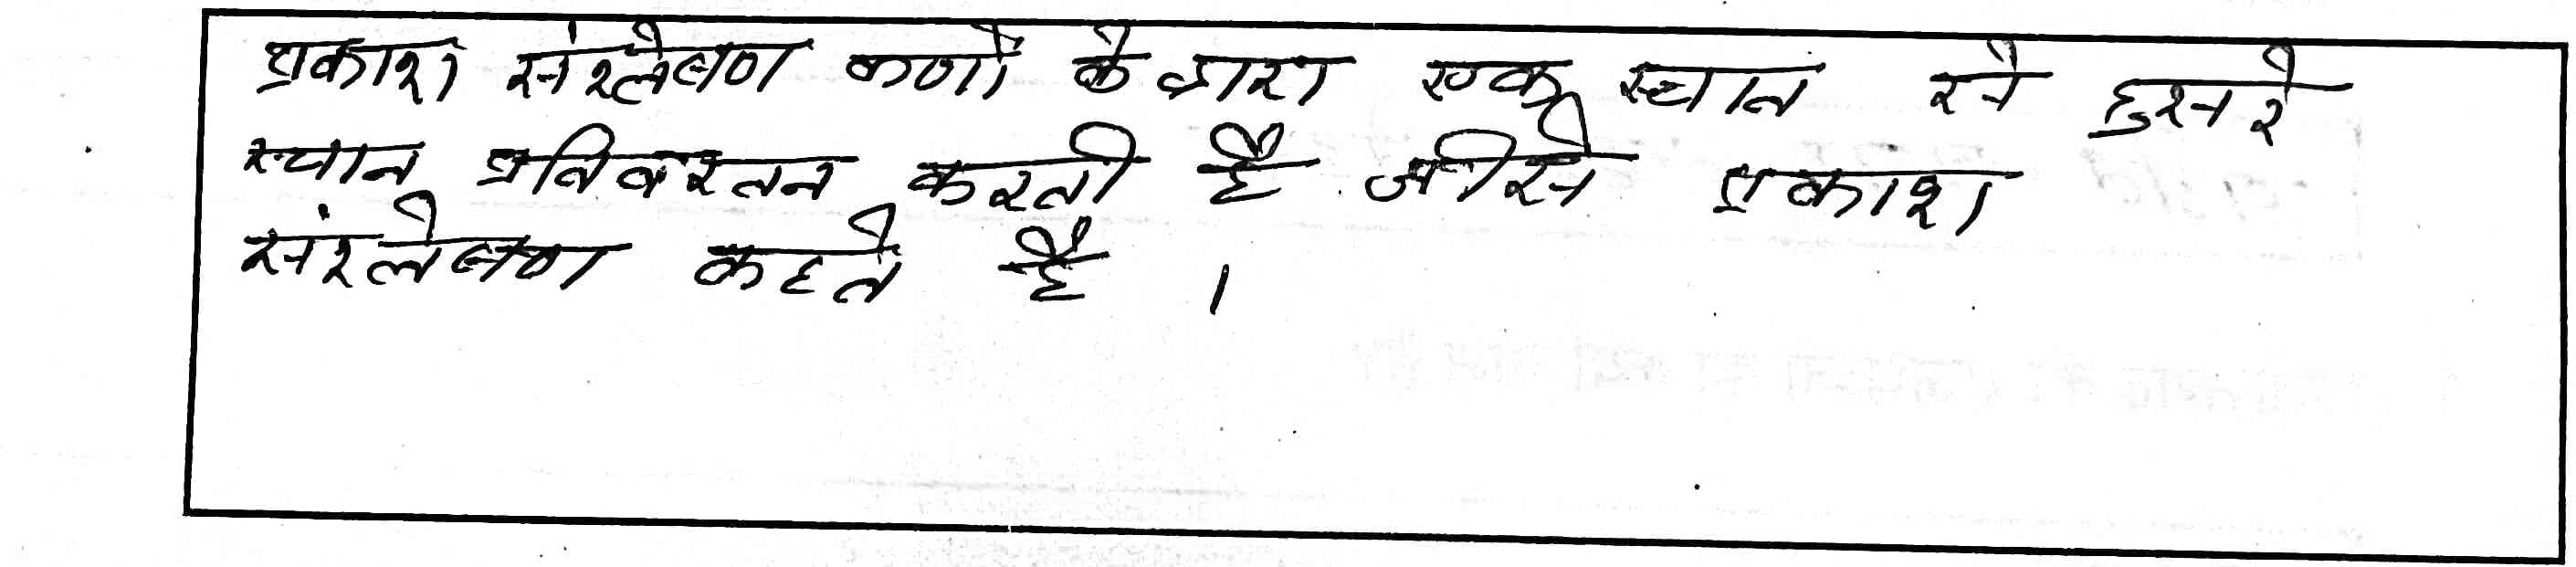 प्रकाश संश्लेषण कणों के द्वारा एक स्थान से दुसरे
स्थान प्रतिवरतन करती है जीसे प्रकाश
संश्लेषण कहते है ।